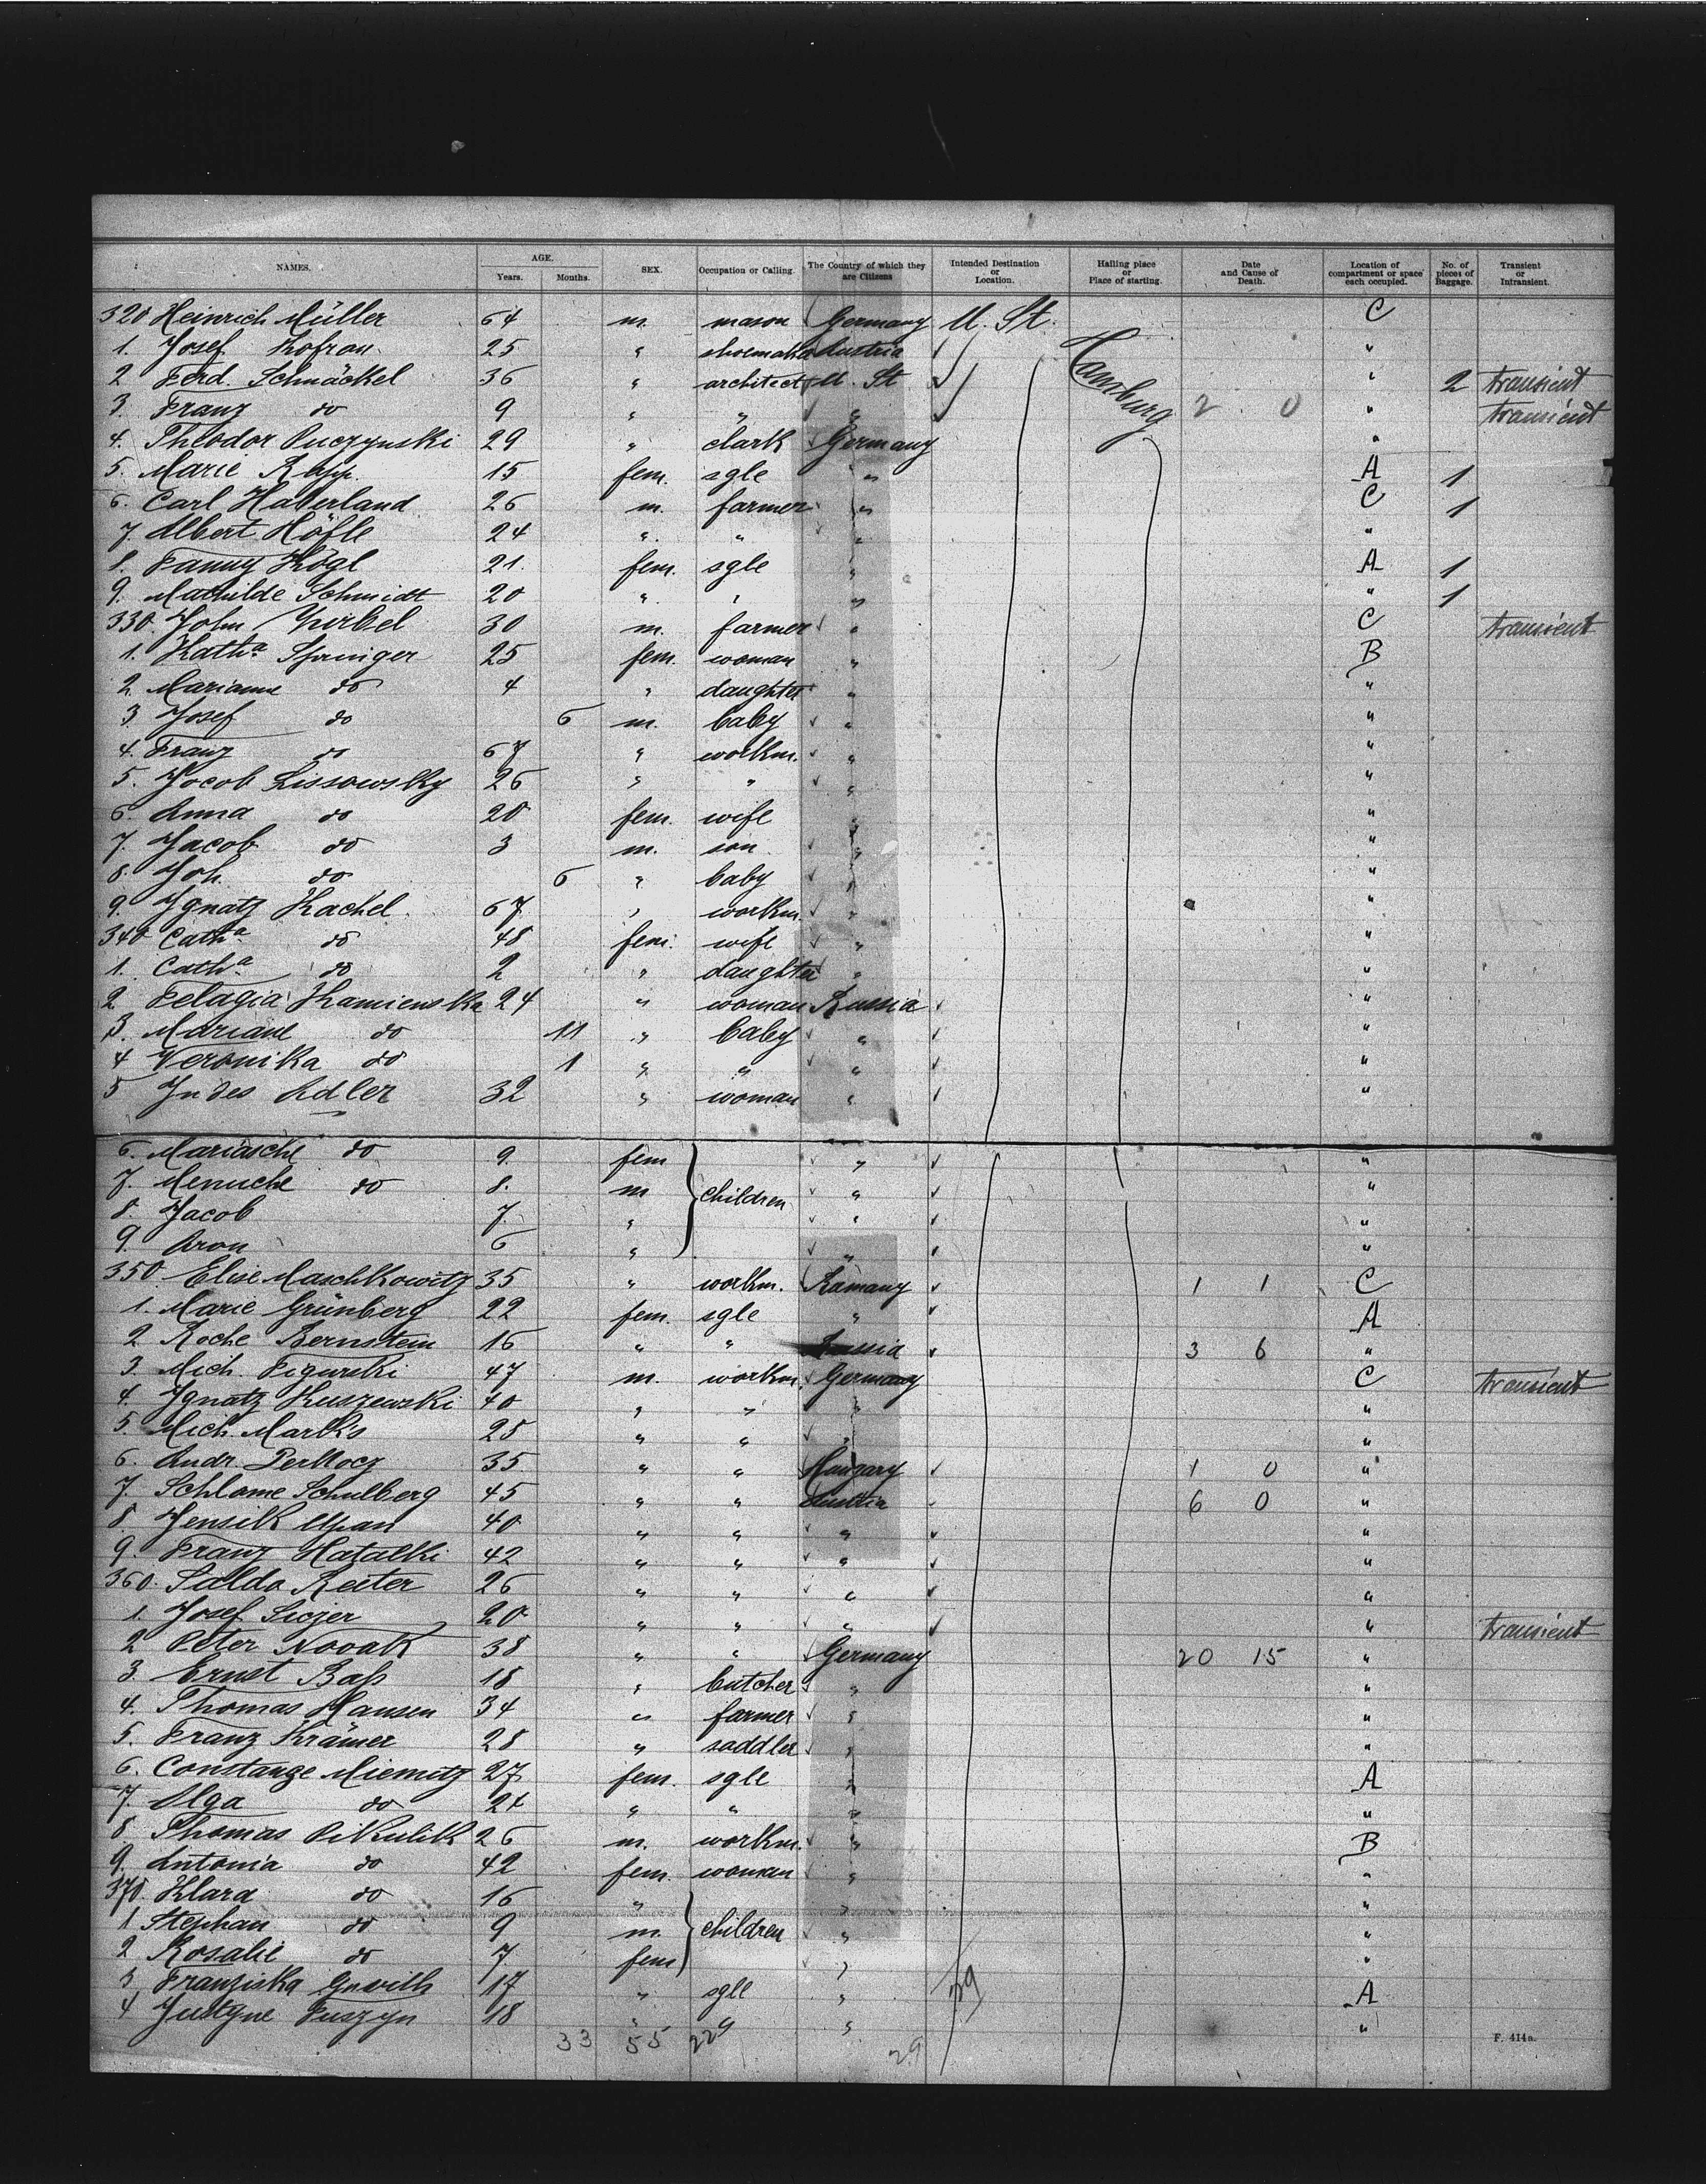 NAMES. AGE. Years. Months. SEX. Occupation or Calling. The Country of which they are Citizens Intended Destination or Location. Hailing place or Place of starting. Date and Cause of Death. Location of compartment or space each occupied. No. of pieces of Baggage. Transient or Intransient.
320 Heinrich Müller 64 m. mason Germany U. St. Hamburg C
1. Josef Kofron 25 " shoemaker Austria "
2 Ferd. Schnäckel 36 " architect U. St " 2 transient
3. Franz do 9 " " " 2 0 " transient
4. Theodor Puczynski 29 " clark Germany "
5. Marie Rapp. 15 fem. sgle " A 1
6. Carl Haberland 26 m. farmer " C 1
7. Albert Höfle 24 " " " "
8. Fanny Kögl 21. fem. sgle " A 1
9. Mathilde Schmidt 20 " " " " 1
330. John 30 m. farmer " C transient
1. Katha Springer 25 fem. woman " B
2. Marianne do 4 " daughter " "
3 Josef do 6 m. baby " "
4. Franz do 67 " workm. " "
5. Jocob Lissowsky 26 " " " "
6. Anna do 20 fem. wife " "
7. Jacob do 3 m. son " "
8. Joh. do 6 " baby " "
9. Ignatz Kachel 67 " workm. " "
340 Catha do 48 fem. wife " "
1. Catha do 2 " daughter " "
2 Pelagia Kamienska 24 " woman Russia "
3. Mariane do 11 " baby " "
4 Veronika do 1 " " " "
5 Indes Adler 32 " woman " "
6. Mariasche do 9. fem " "
7. Menuche do 8. m children " "
8. Jacob 7. " " "
9. Aron 6 " " "
350 Elise Maschkowitz 35 " workm. Ramany 1 1 C
1. Marie Grünberg 22 fem. sgle " A
2 Roche Bernstein 16 " " Russia 3 6 "
3. Mich. Figurski 47 m. workm. Germany C transient
4. Ignatz Kuszewski 40 " " " "
5. Mich. Marks 25 " " " "
6. Andr. Perkocz 35 " " Hungary 1 0 "
7. Schlome Schulberg 45 " " Austria 6 0 "
8. 40 " " " "
9. Franz Hatalki 42 " " " "
360. Salda Reiter 26 " " " "
1. Josef 20 " " " " transient
2 Peter Novak 38 " " Germany 20 15 "
3. Ernst Baß 18 " butcher " "
4. Thomas Hansen 34 " farmer " "
5. Franz Krämer 28 " saddler " "
6. Constanze Miemitz 27 fem. sgle " A
7. Olga do 24 " " " "
8. Thomas Pikulik 26 m. workm. " B
9. Antonia do 42 fem. woman " "
370. Klara do 16 " " "
1 Stephan do 9 m. children " "
2 Rosalie do 7 fem " "
3 Franziska 17 " sgle " 29 A
4 Justyne Puszyn 18 " " " "
33 55 229 29
F. 414a.